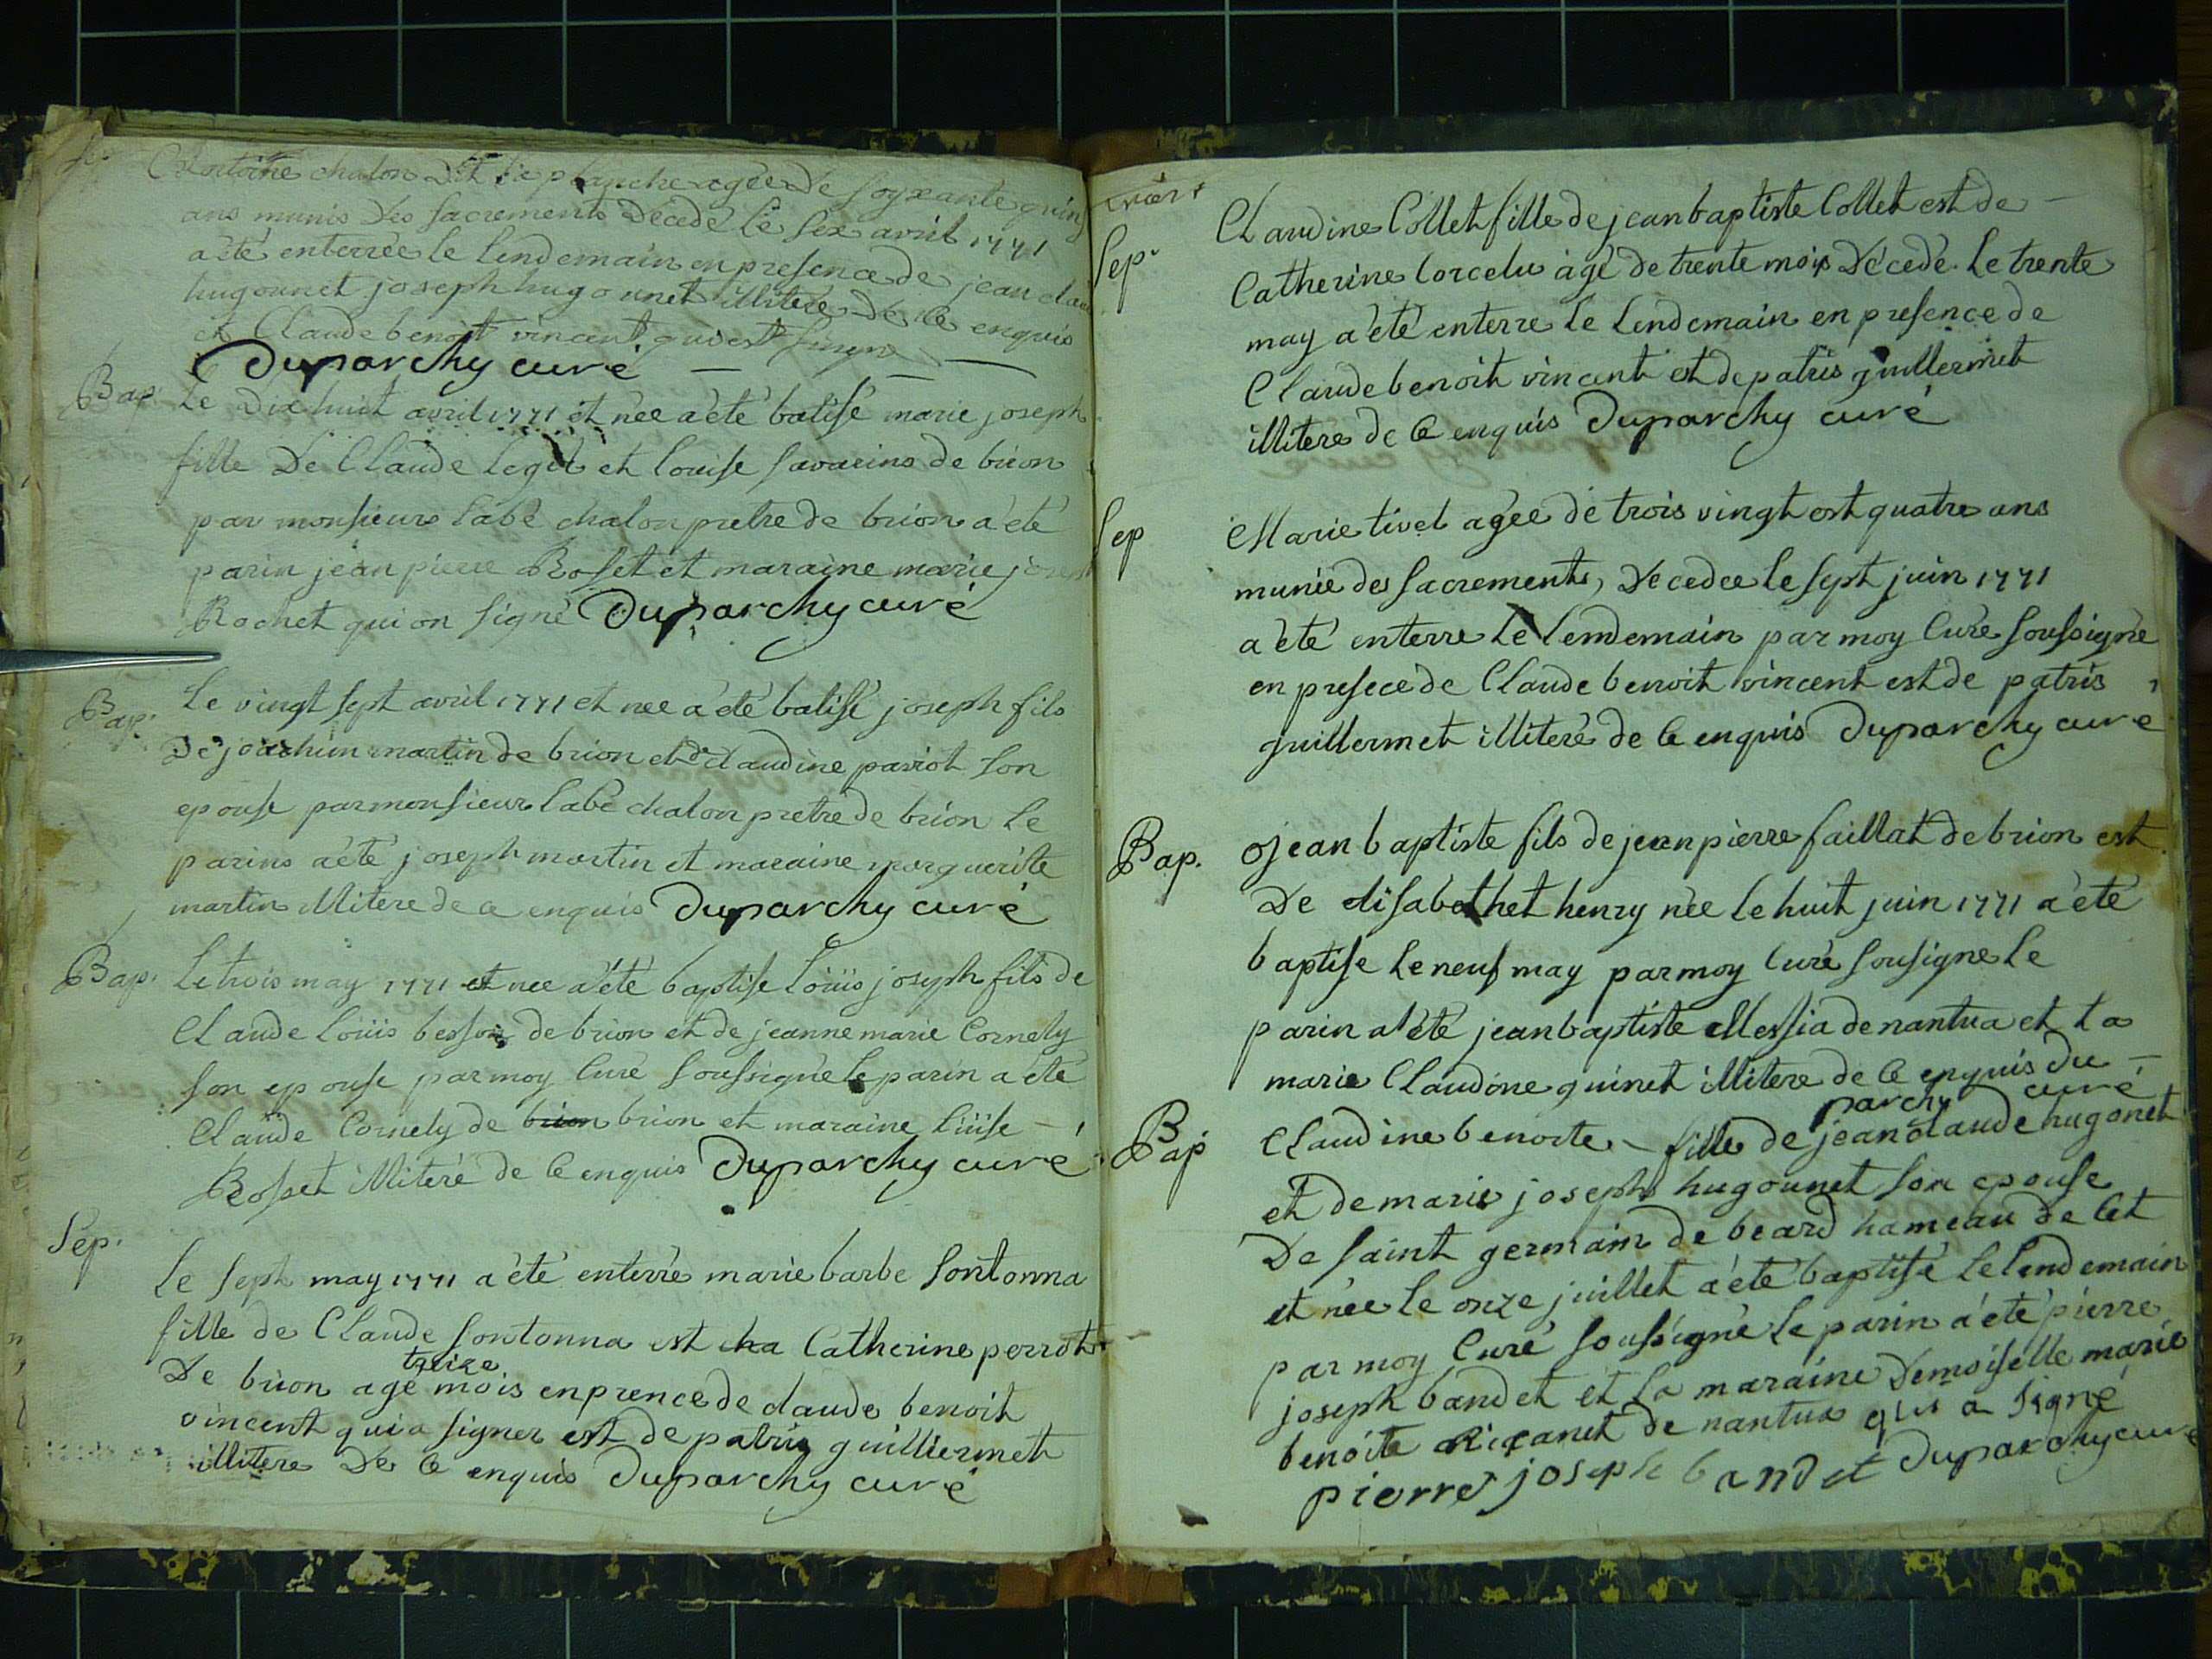 Sep.
Antoine chalon Dit la planche agée de soyxante quinz
ans munis des sacrements décedé le six avril 1771
a été enterrée le lendemain en presence de jean claude
hugounet joseph hugounet illiteré de ce enquis
et Claude benoit vincent qui est signe
Duparchy curé
Bap. Le Dix huit avril 1771 et née a été batisé marie joseph
fille De Claude Legit et Louise savarins de brion
par monsieur labé chalon pretre de brion a été
parin jean pierre Rosset et maraine marie joseph
Rochet qui on signé Duparchy curé
Bap. Le vingt sept avril 1771 et nee a été batisé joseph fils
De joachim martin de brion et de claudine pariot son
epouse par monsieur labé chalon pretre de brion Le
parins a été joseph martin et maraine marguerite
martin illitere de ce enquis Duparchy curé
Bap. Le trois may 1771 et nee a été baptise Loüis joseph fils de
Claude Loüis besson de brion et de jeanne marie Cornely
son epouse par moy Curé soussigné le parin a été
Claude Cornely de brion brion et maraine Lüise
Rosset illiteré de ce enquis Duparchy curé
Sep.
Le sept may 1771 a été enterré marie barbe sontonna
fille de Claude sontonna est cha Catherine perrot
treize
De brion agé mois en prence de claude benoit
vincent qui a signer est de patris guilliermet
illitere De ce enquis Duparchy curé
Sep. Claudine Collet fille de jean baptiste Collet est de
Catherine Corcelu àgé de trente mois Décedé. Le trente
may a été enterre le lendemain en presence de
Claude benoit vincent et de patris guillermet
illitere de ce enquis Duparchy curé
Sep Marie tivet agée de trois vingt est quatre ans
munie des sacrements, Decedee le sept juin 1771
a été enterre Le Lendemain par moy Curé soussigné
en presece de Claude benoit vincent est de patris
guillermet illiteré de ce enquis Duparchy curé
Bap. jean baptiste fils de jean pierre faillat de brion est
De elisabethet henry née le huit juin 1771 a été
baptise le neuf may par moy Curé sousigne Le
parin a été jean baptiste Messia de nantua et la
marie Claudine guinet illitere de ce enquis du
parchy curé
Bap Claudine benoite fille de jean claude hugonet
et de marie joseph hugounet son epouse
De saint germain de beard hameau de Cet
et née le onze juillet a été baptisé le lendemain
par moy Curé soussigné le parin a été pierre
joseph bandet et la maraine Demoiselle marie
benoite Rixanet de nantua qui a signé
pierre joseph bandet Duparchy curé